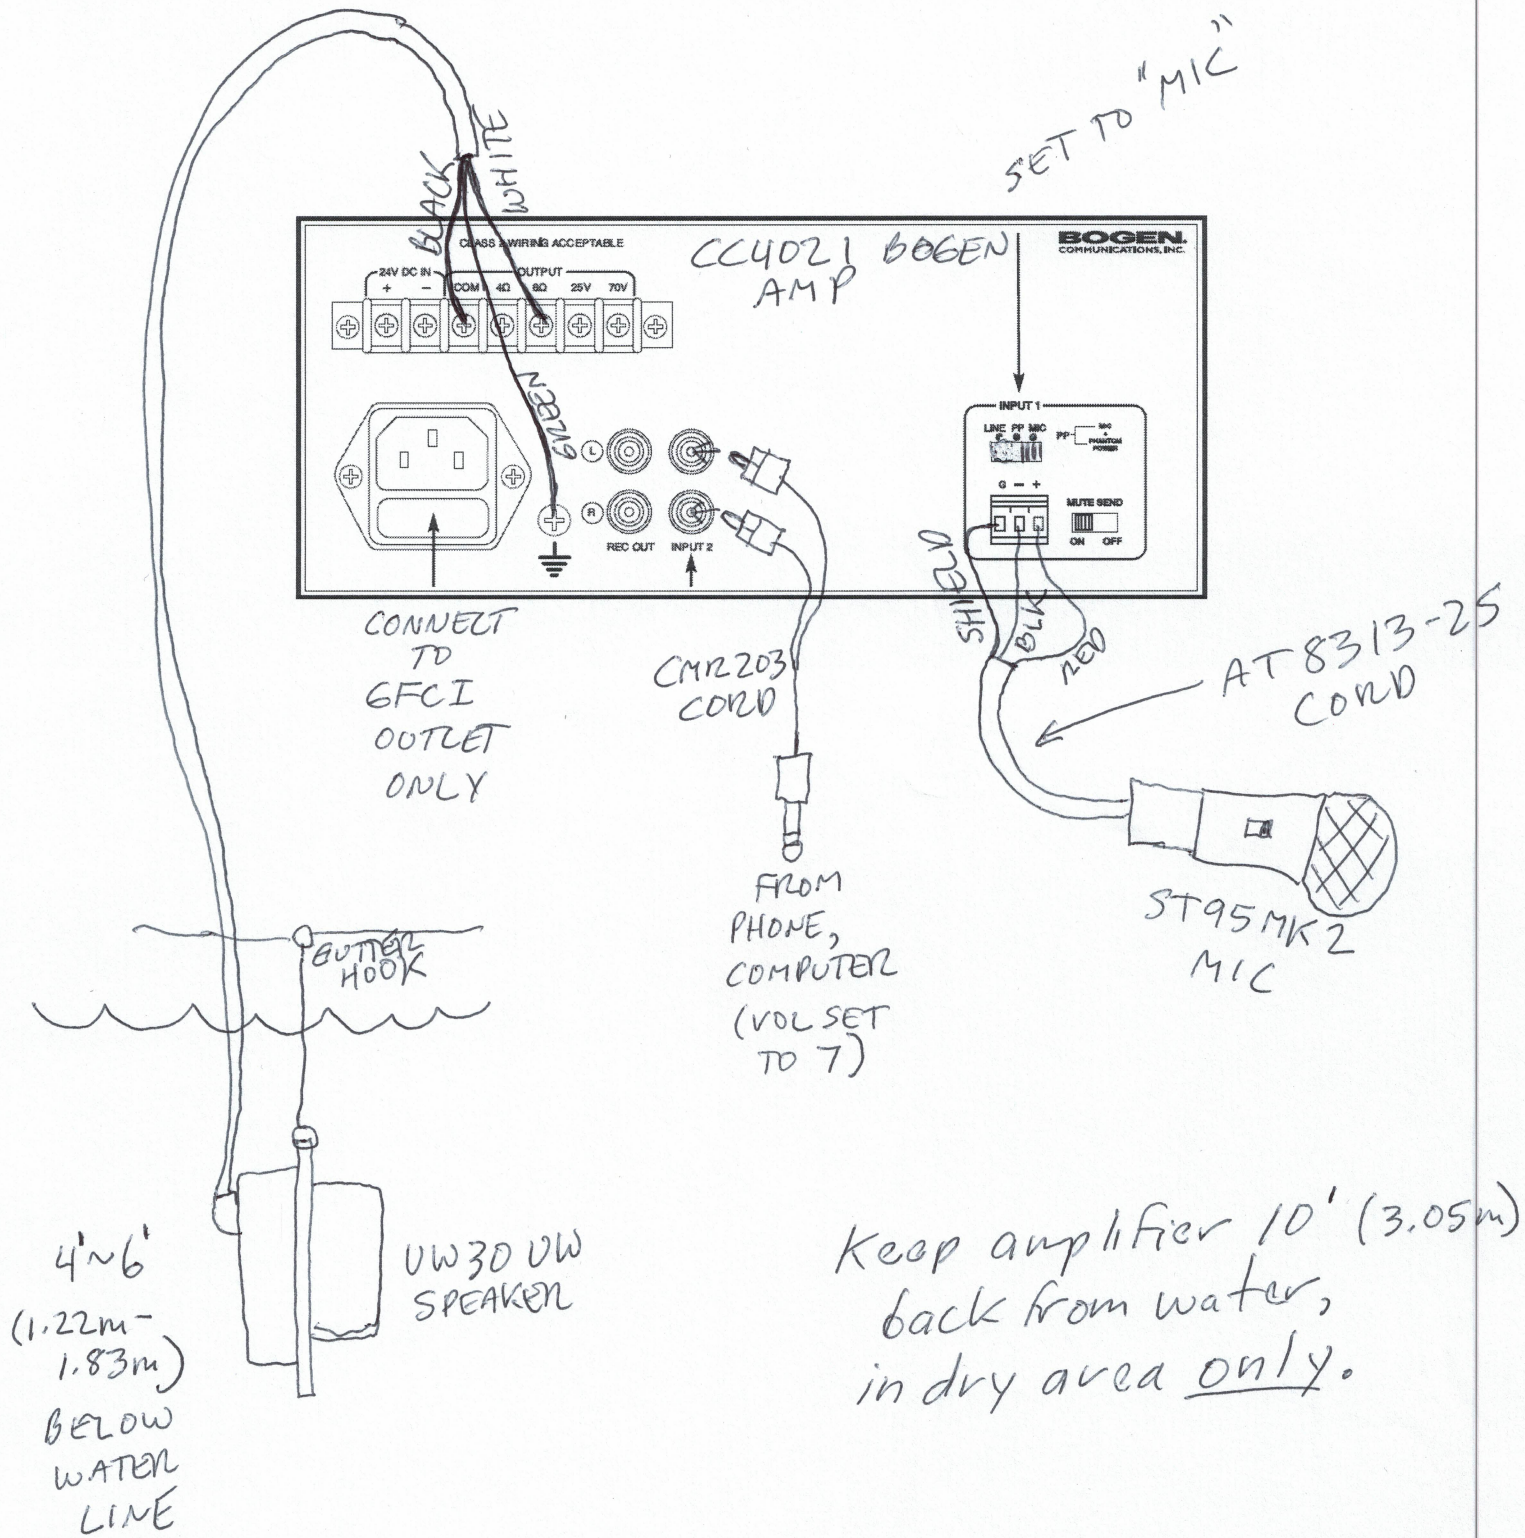 SET TO "MIC"
BLACK
WHITE
CLASS 2 WIRING ACCEPTABLE
CC4021 BOGEN
AMP
BOGEN.
COMMUNICATIONS, INC.
24V DC IN
OUTPUT
+ − COM 4Ω 8Ω 25V 70V
GREEN
L
R
REC OUT
INPUT 2
INPUT 1
LINE PP MIC
PP
MIC
+
PHANTOM
POWER
G − +
MUTE SEND
ON OFF
SHIELD
BLK
RED
CONNECT
TO
GFCI
OUTLET
ONLY
CMR203
CORD
AT8313-25
CORD
FROM
PHONE,
COMPUTER
(VOL SET
TO 7)
ST95MK2
MIC
GUTTER
HOOK
4'~6'
(1.22m-
1.83m)
BELOW
WATER
LINE
UW30 UW
SPEAKER
Keep amplifier 10' (3.05m)
back from water,
in dry area only.